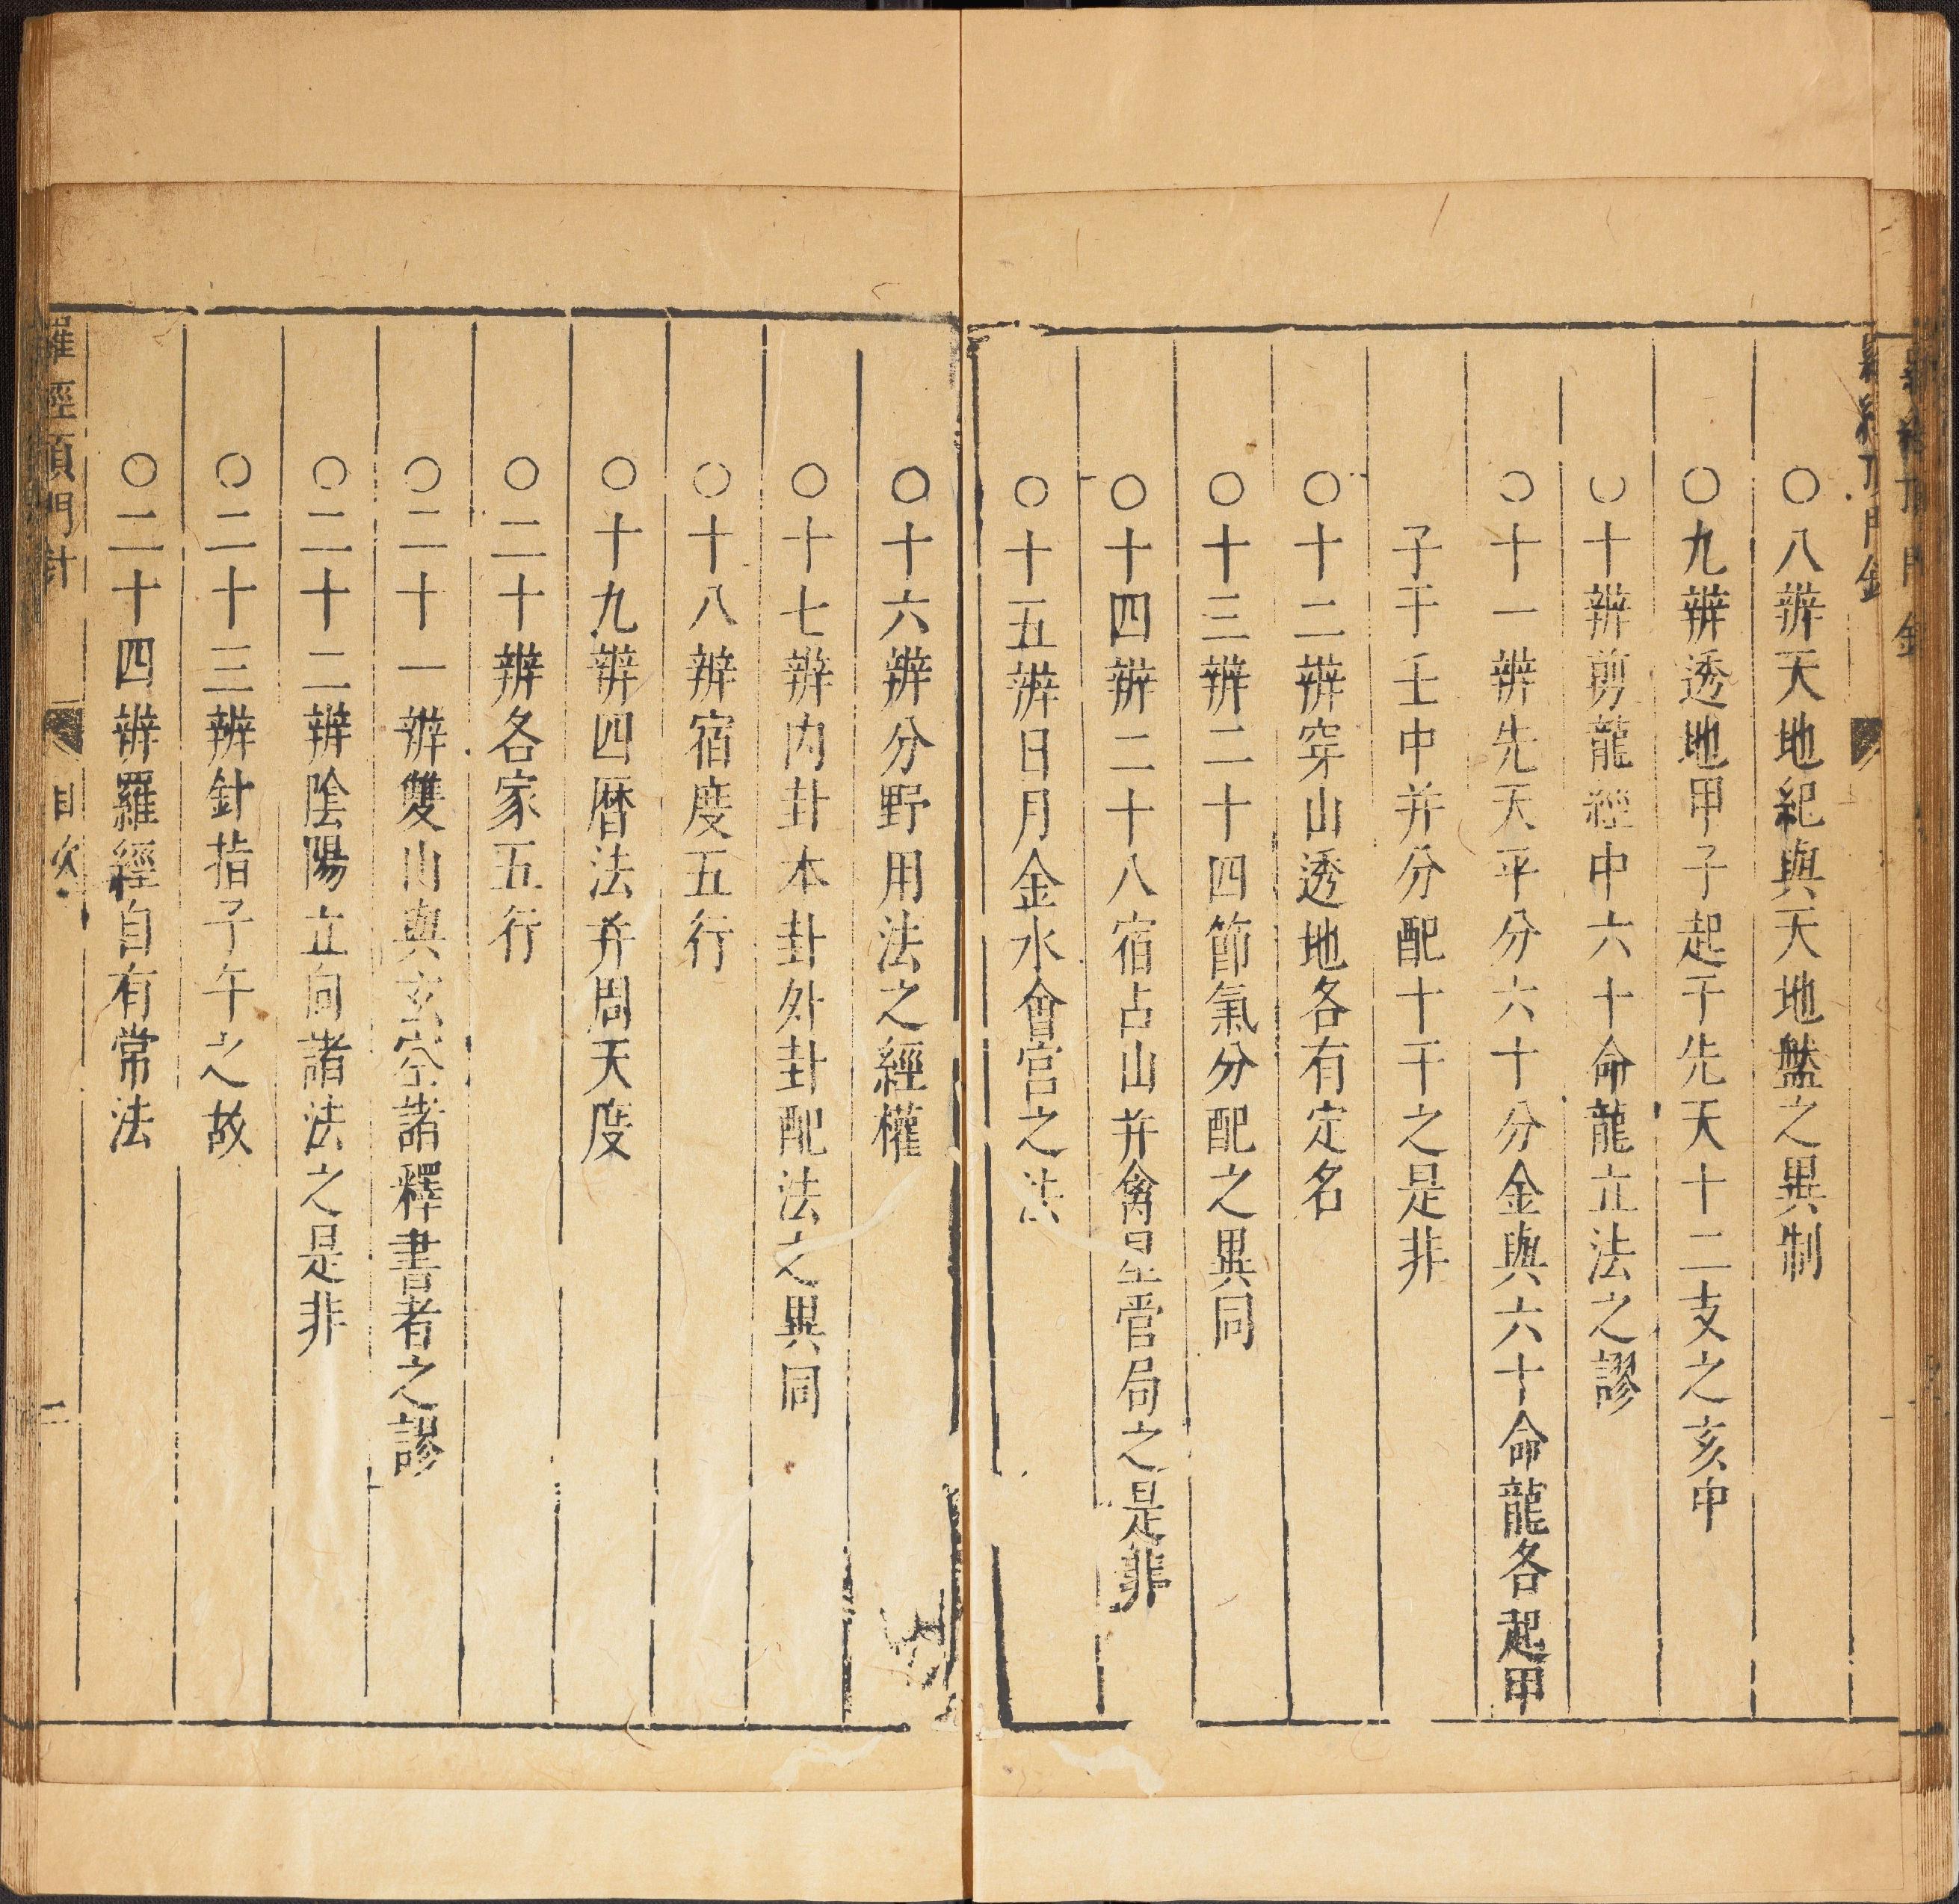 〇八辨天地紀與天地盤之異制
〇九辨透地甲子起于先天十二支之亥中
〇十辨剪龍經中六十命龍立法之謬
〇十一辨先天平分六十分金與六十命龍各起甲
子于壬中并分配十干之是非
〇十二辨穿山透地各有定名
〇十三辨二十四節氣分配之異同
〇十四辨二十八宿占山并禽星管局之是非
〇十五辨日月金水會宮之法
〇十六辨分野用法之經權
〇十七辨內卦本卦外卦配法之異同
〇十八辨宿度五行
〇十九辨四曆法并周天度
〇二十辨各家五行
〇二十一辨雙山與玄空諸釋書者之謬
〇二十二辨陰陽立向諸法之是非
〇二十三辨針指子午之故
〇二十四辨羅經自有常法
羅經頂門針 目次 二